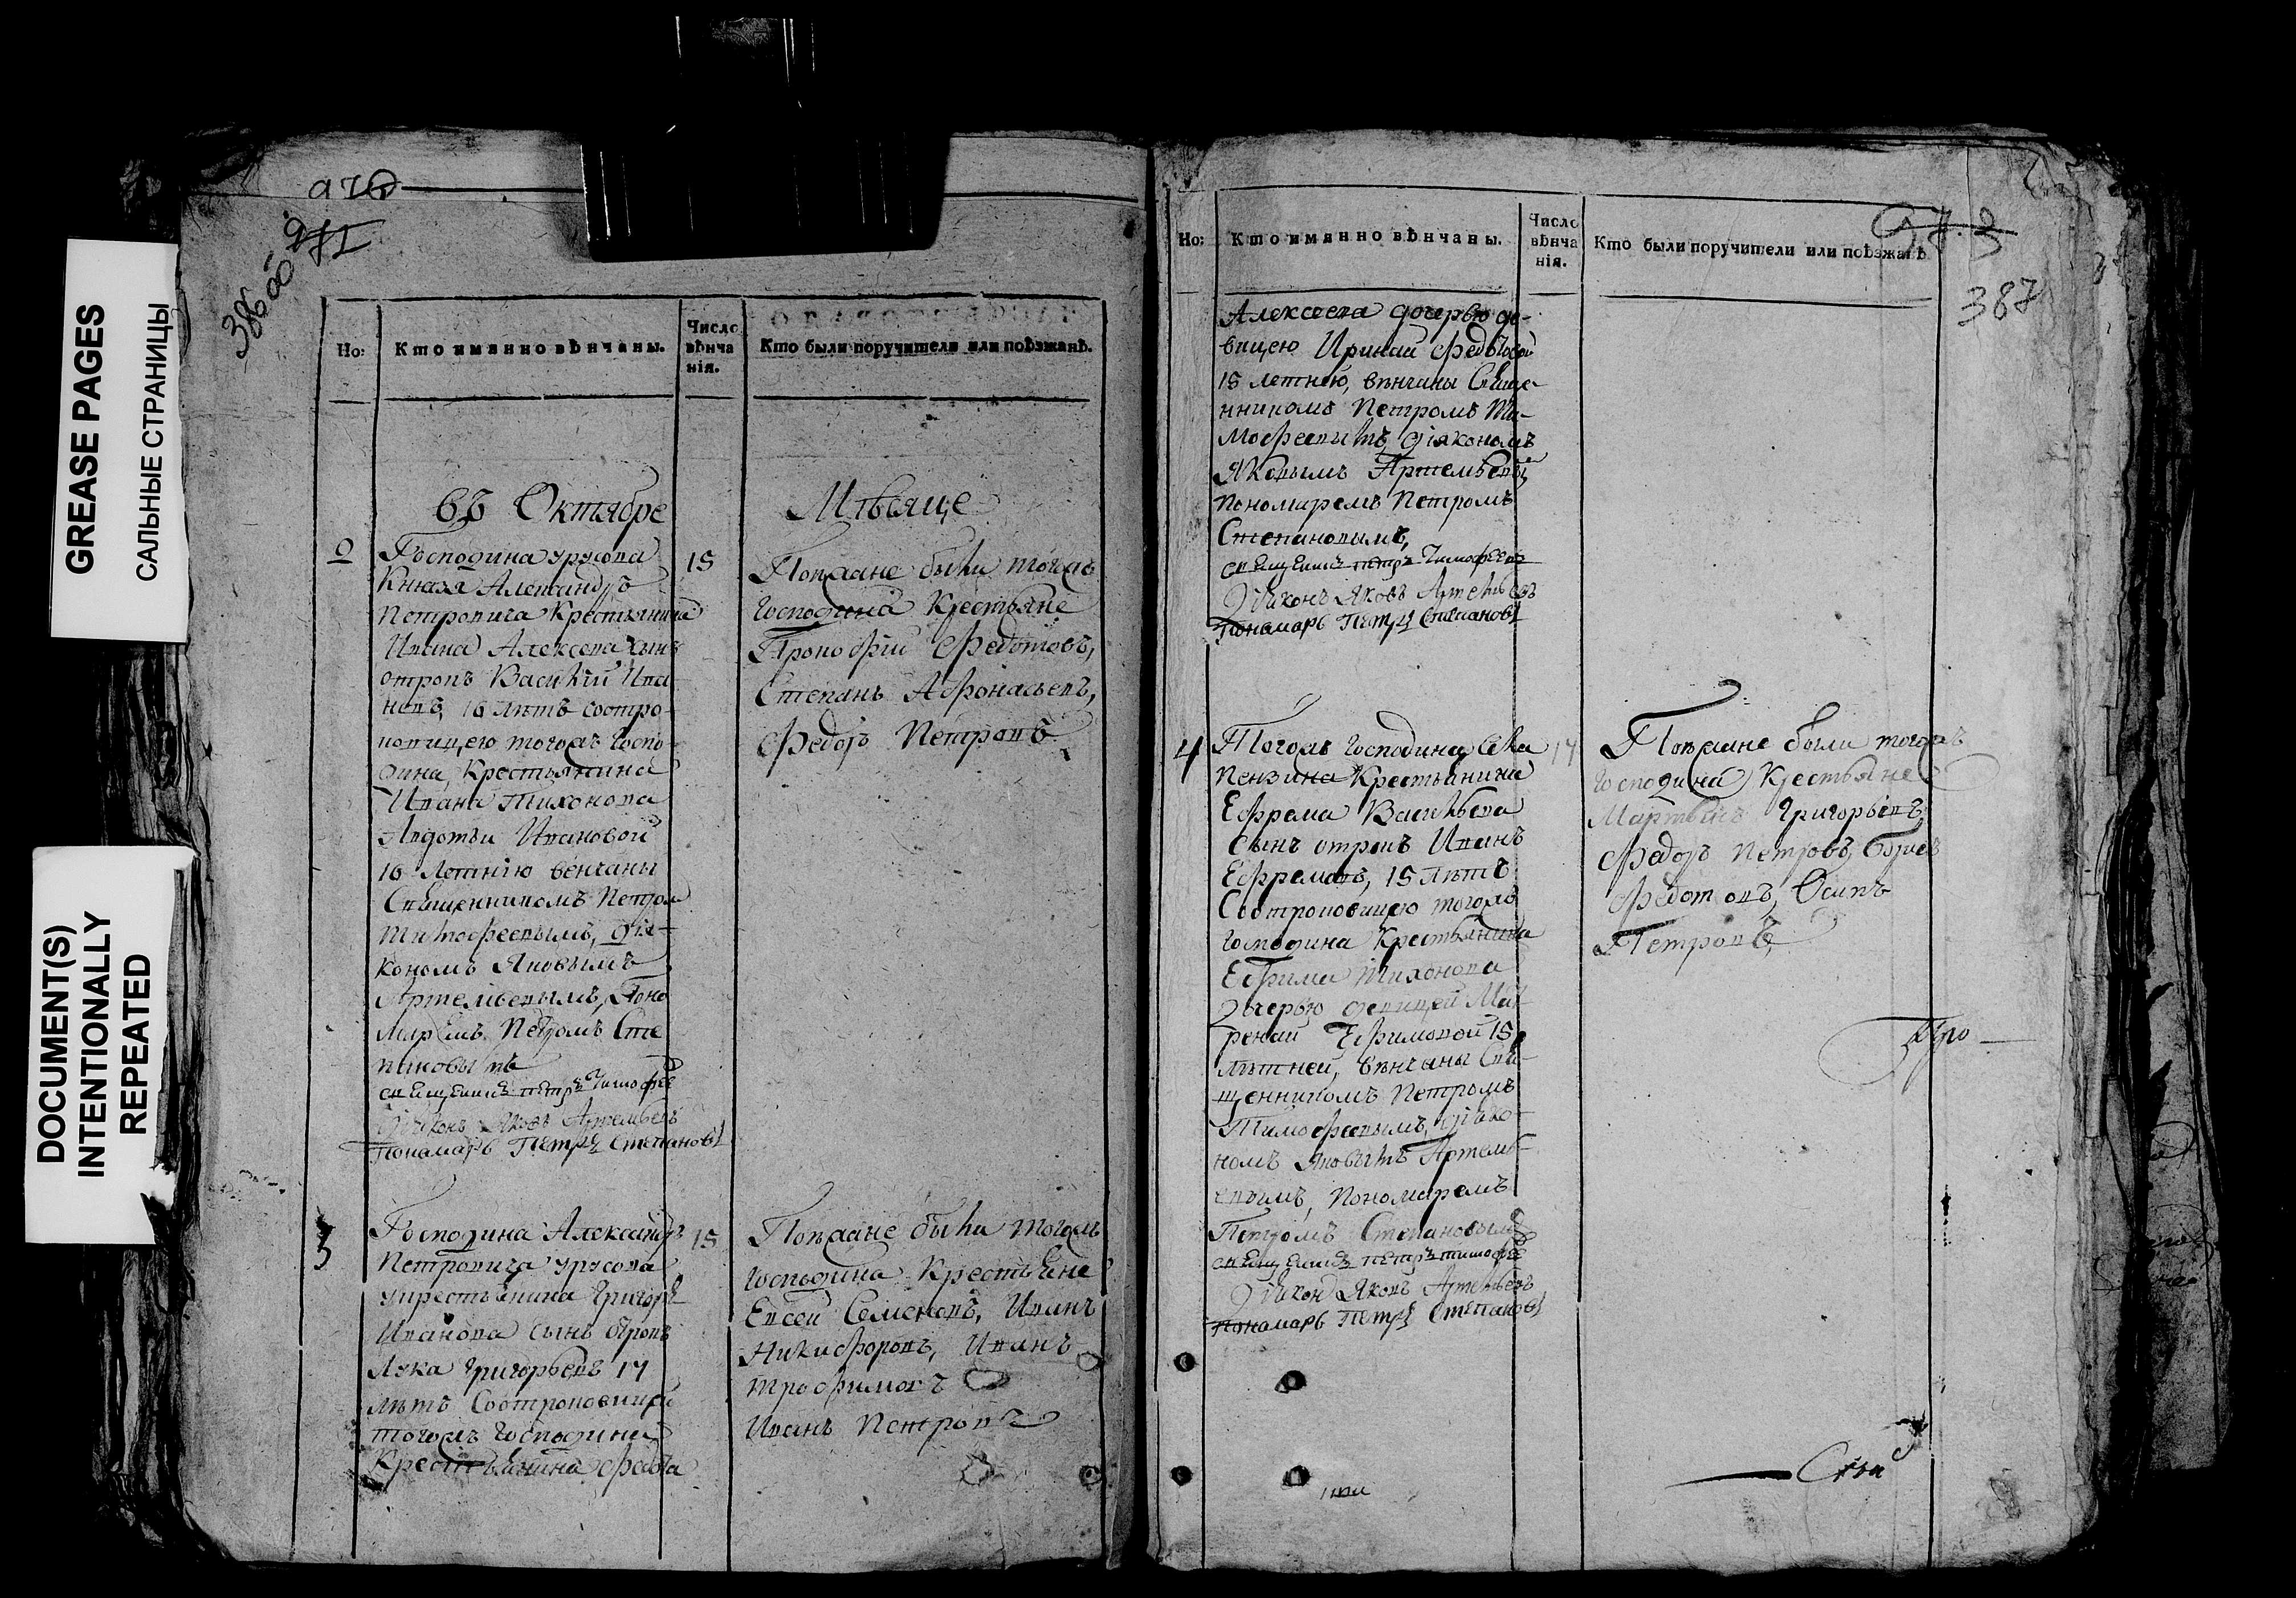 GREASE PAGES
САЛЬНЫЕ СТРАНИЦЫ
DOCUMENT(S)
INTENTIONALLY
REPEATED
386 об
Но:
Кто имянно вѣнчаны.
Число
вѣнча
нія.
Кто были поручители или поѣзжанѣ.
въ Октябре
Мѣсяце
2
Господина урусова
Князя Александръ
Петровича Крестьянина
Ивана Алексеева сынъ
отрокъ Василій Ива
новъ, 16 лѣтъ соотро
ковицею тогожъ Госпо
дина Крестьянина
Ивана Тихонова
Авдотьи Ивановой
16 Летнію венчаны
Священникомъ Петром
Тимофеевымъ, дія-
кономъ Яковымъ
Артемьевымъ, Поно
маремъ Петромъ Сте
пановымъ
священникъ петръ Тимофее
Діяконъ Яковъ Артемьевъ
Пономарь Петръ Степановъ
15
Поѣзжане были тогожъ
Господина Крестьяне
Прокофій Федотовъ,
Степанъ Афонасьевъ,
Федоръ Петровъ
3
Господина Александръ
Петровича урусова
крестьянина Григорья
Иванова сынъ отрокъ
Лука Григорьевъ 17
лѣтъ Соотроковицей
тогожъ Господина
Крестьянина Федота
15
Поѣзжане были тогожъ
Господина Крестьяне
Евсей Семеновъ, Иванъ
Никифоровъ, Иванъ
трофимовъ
Иванъ Петровъ
387
Но:
Кто имянно вѣнчаны.
Число
вѣнча
нія.
Кто были поручители или поѣзжанѣ.
Алексеева дочерью де-
вицею Ириней Федотовой
15 летнею, вѣнчаны Свяще-
нникомъ Петромъ Ти-
мофеевымъ діякономъ
Яковымъ Артемьевы
пономаремъ Петромъ
Степановымъ,
священникъ петръ Тимофеевъ
Діяконъ Яковъ Артемьевъ
Пономарь Петръ Степановъ
4
Тогожъ Господина Села
Пензина Крестьянина
Ефрема Васильева
Сынъ отрокъ Иванъ
Ефремовъ, 15 лѣтъ
Соотроковицею тогожъ
господина Крестьянина
Ефима Тихонова
дочерью девицей Мат
реной Ефимовой 15
лѣтней, вѣнчаны Свя-
щенникомъ Петромъ
Тимофеевымъ, діяко-
номъ Яковымъ Артемь-
евымъ, Пономаремъ
Петромъ Степановымъ
священникъ петръ тимофее
Діяконъ Яковъ Артемьевъ
Пономарь Петръ Степановъ
17
Поѣзжане были тогожъ
Господина Крестьяне
Мартынъ Григорьевъ
Федоръ Петровъ, Борисъ
Федотовъ, Осипъ
Петровъ,